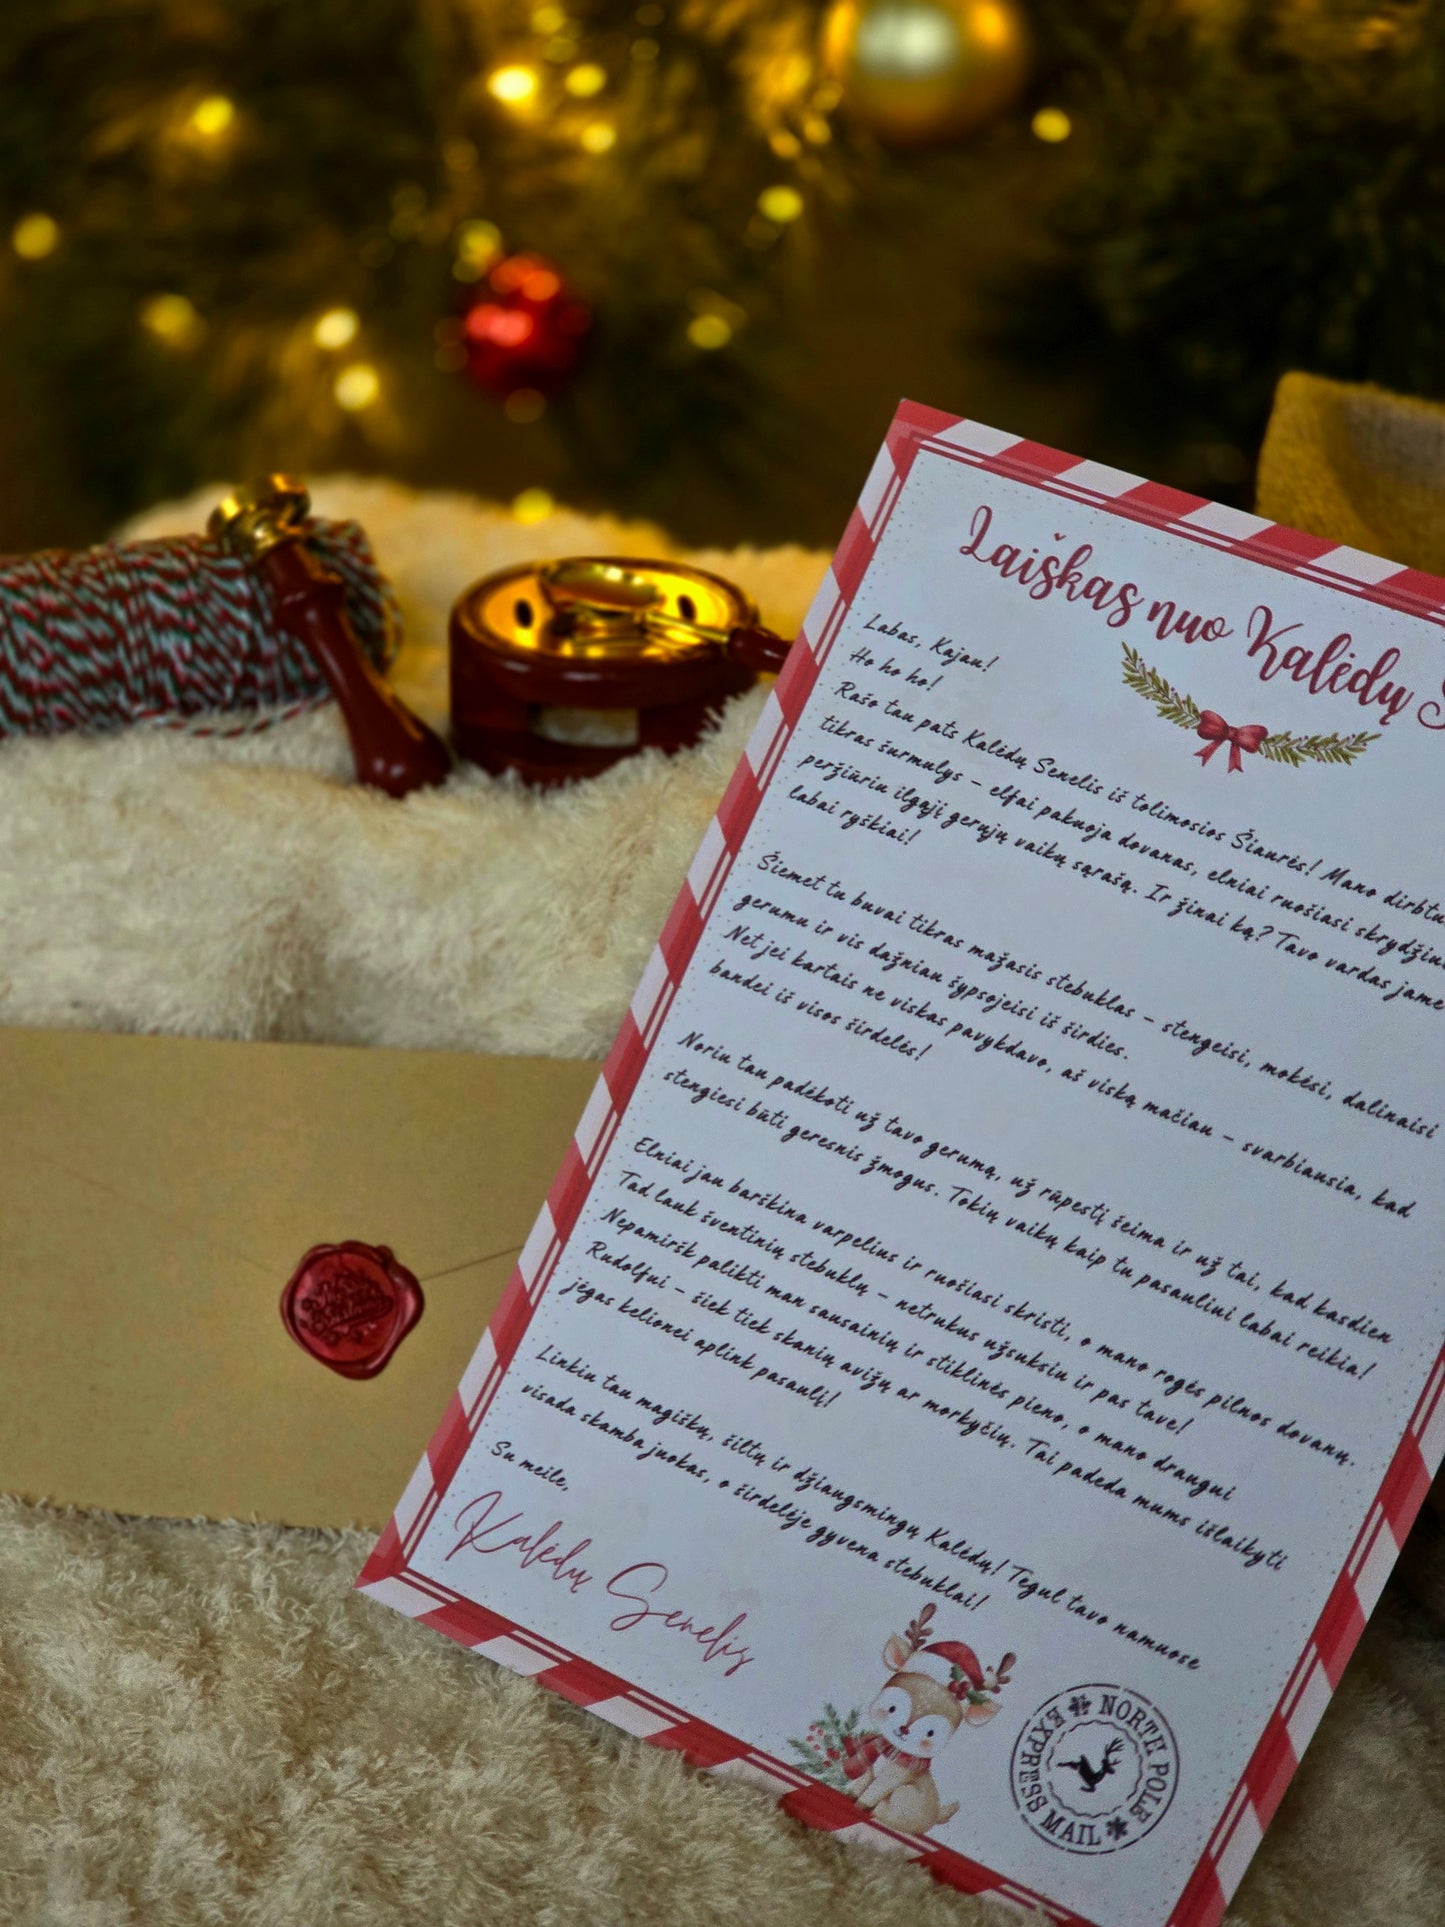 Laiškas nuo Kalėdų
Labas, Kajau!
Ho ho ho!
Rašo tau pats Kalėdų Senelis iš tolimosios Šiaurės! Mano
tikras šurmulys – elfai pakuoja dovanas, elniai ruošiasi
peržiūriu ilgąjį gerųjų vaikų sąrašą. Ir žinai ką? Tavo vardas jame
labai ryškiai!
Šiemet tu buvai tikras mažasis stebuklas – stengeisi, mokėsi, dalinaisi
gerumu ir vis dažniau šypsojeisi iš širdies.
Net jei kartais ne viskas pavykdavo, aš viską mačiau – svarbiausia, kad
bandei iš visos širdelės!
Noriu tau padėkoti už tavo gerumą, už rūpestį šeima ir už tai, kad kasdien
stengiesi būti geresnis žmogus. Tokių vaikų kaip tu pasauliui labai reikia!
Elniai jau barškina varpelius ir ruošiasi skristi, o mano rogės pilnos dovanų.
Tad lauk šventinių stebuklų – netrukus užsuksiu ir pas tave!
Nepamiršk palikti man sausainių ir stiklinės pieno, o mano draugui
Rudolfui – šiek tiek skanių avižų ar morkyčių. Tai padeda mums išlaikyti
jėgas kelionei aplink pasaulį!
Linkiu tau magiškų, šiltų ir džiaugsmingų Kalėdų! Tegul tavo namuose
visada skamba juokas, o širdelėje gyvena stebuklai!
Su meile,
Kalėdų Senelis
NORTH POLE
EXPRESS MAIL